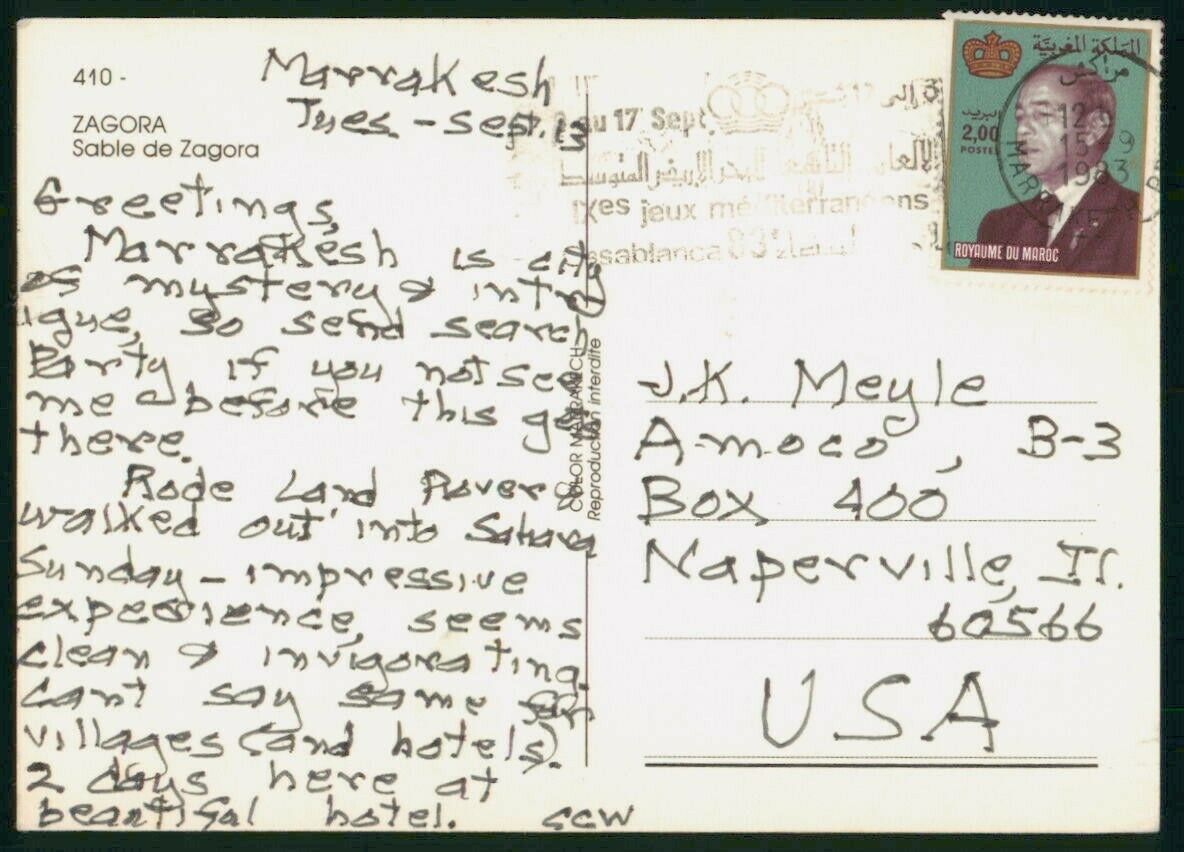 410 -
ZAGORA
Sable de Zagora
Marrakesh
Tues - Sept. 13
Greetings,
Marrakesh is city
of mystery & intr
igue, so send search
Party, if you not see
me before this get
there.
Rode Land Rover &
walked out into Sahara
Sunday - impressive
experience, seems
clean & invigorating.
Cant say same for
villages (and hotels).
2 days here at
beautiful hotel. CCW
COLOR MARRAKECH
Reproduction interdite
au 17 Sept
الألعاب التاسعة للبحر الأبيض المتوسط
IXes jeux méditerranéens
Casablanca 83
المملكة المغربية
مراكش
البريد
2,00
POSTES
12
15 9
1983
ROYAUME DU MAROC
J.K. Meyle
Amoco, B-3
Box 400
Naperville, Il.
60566
USA